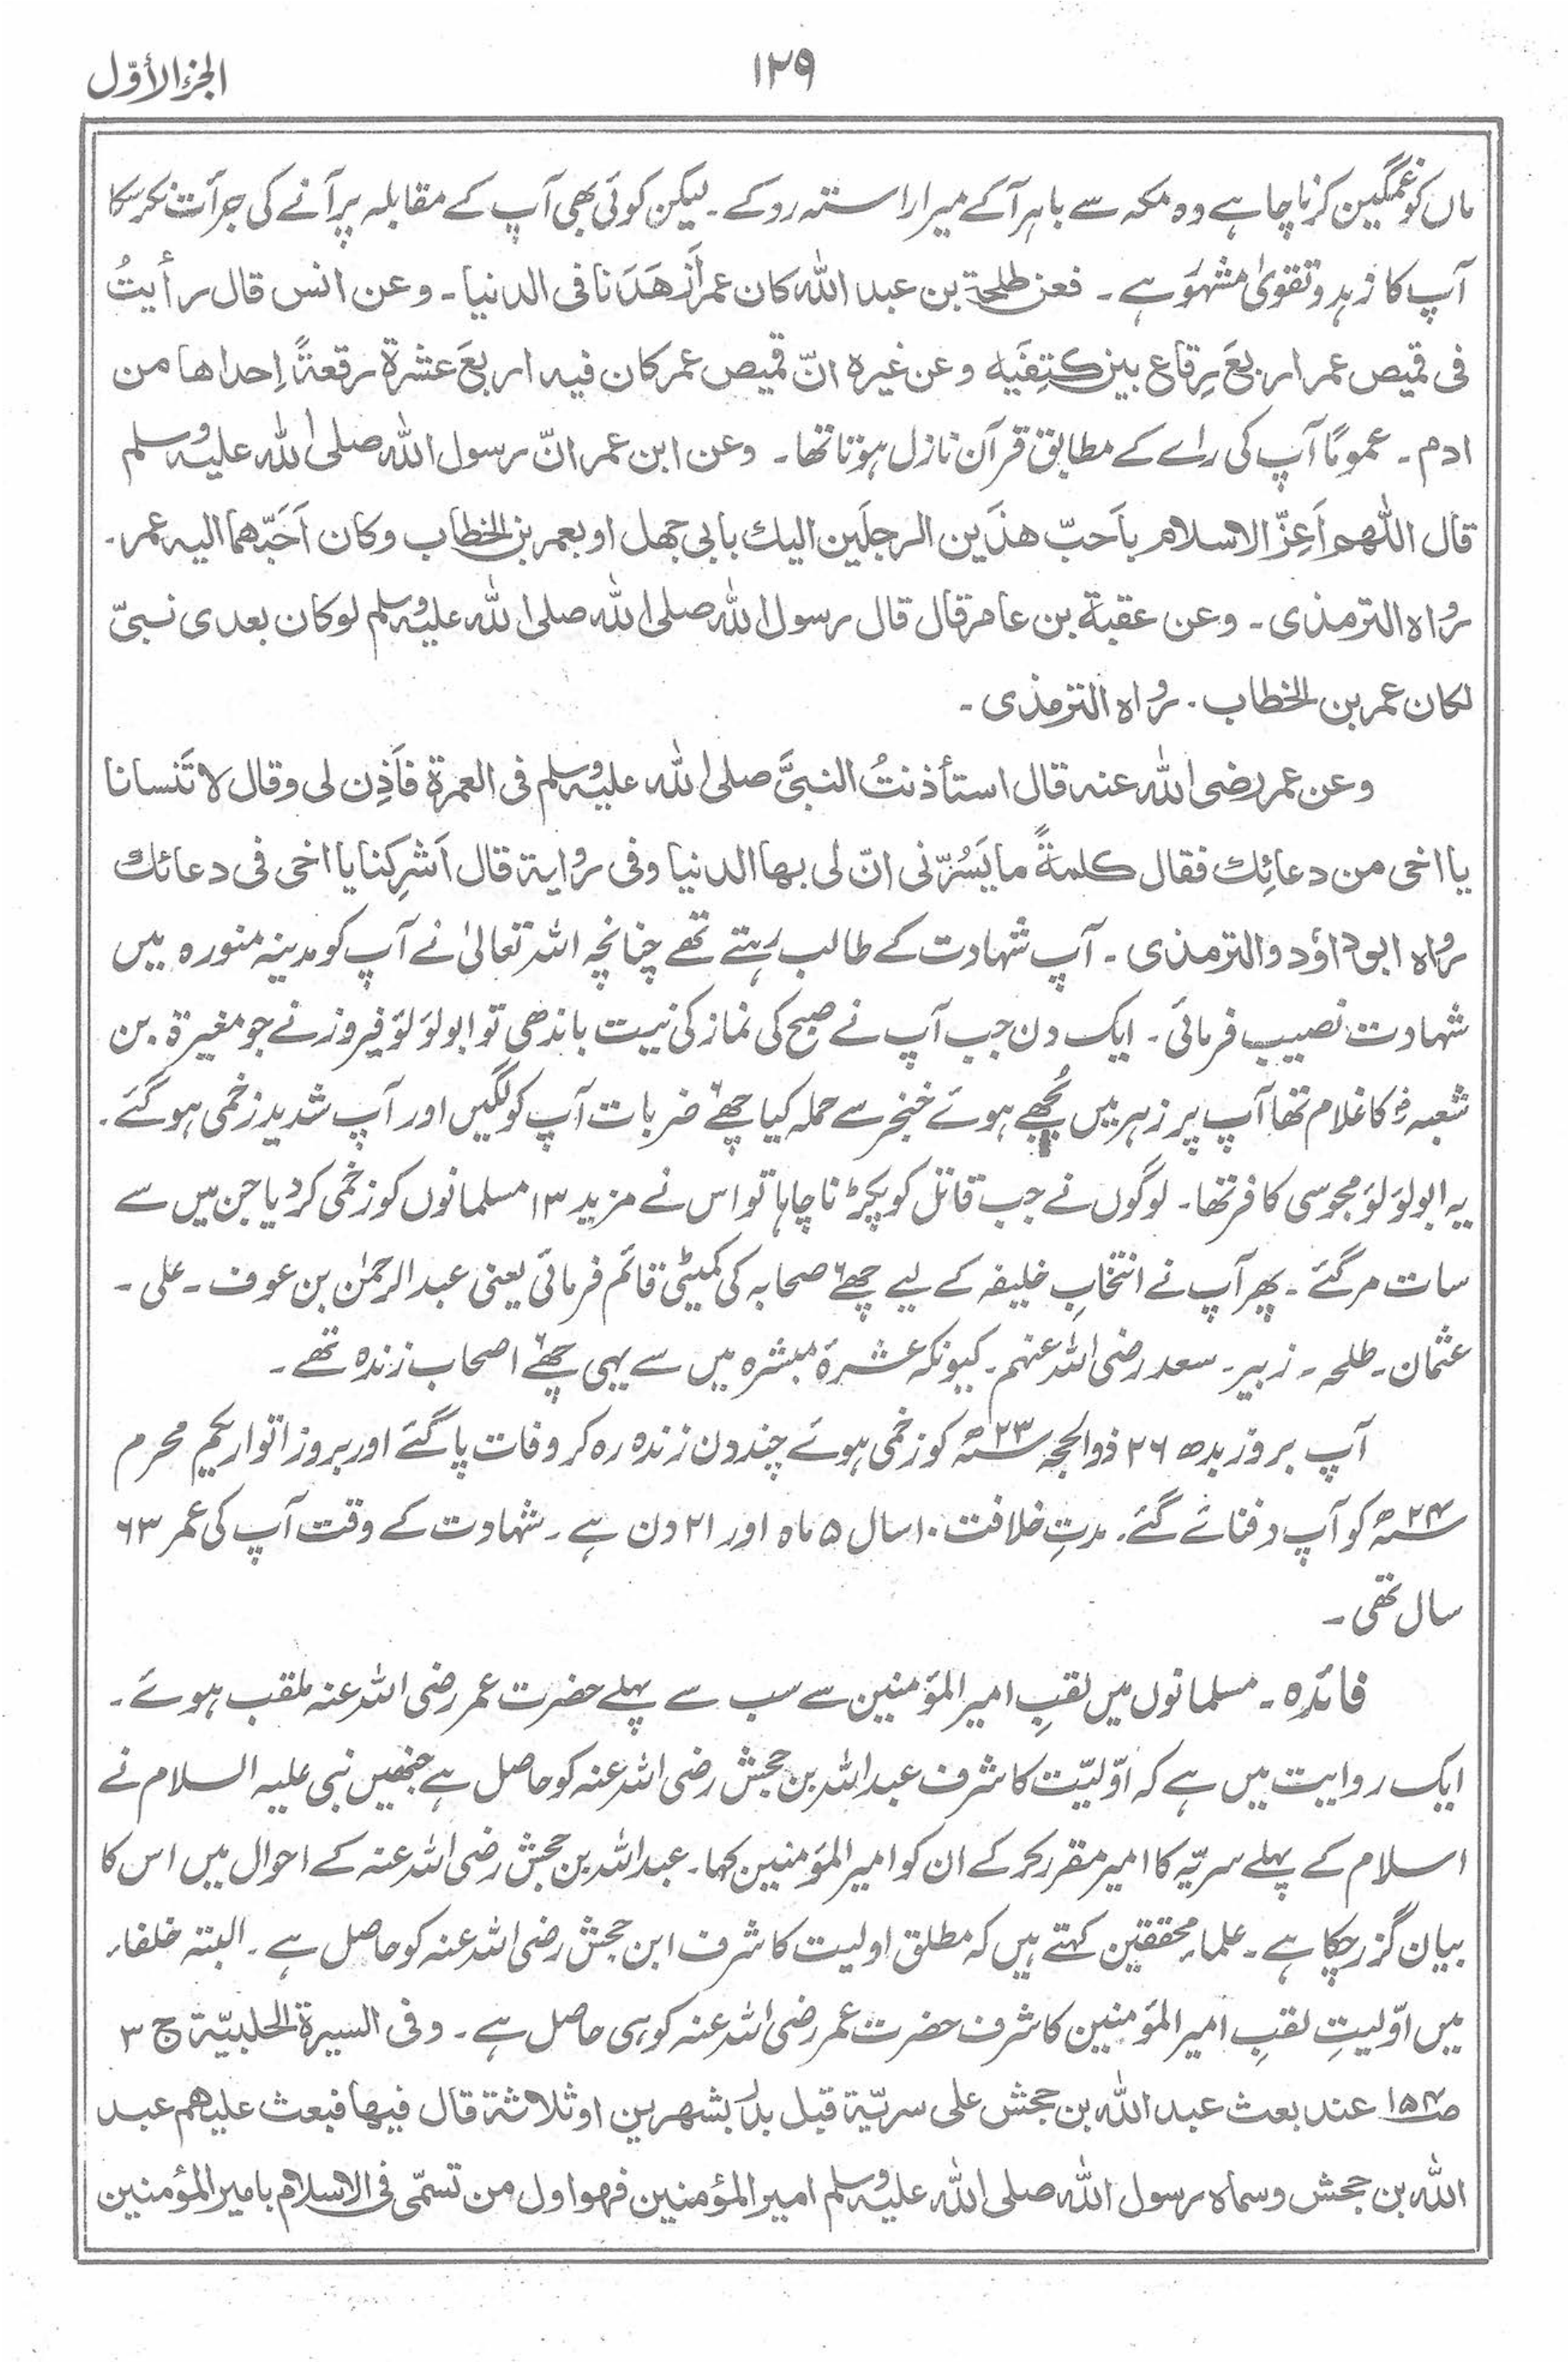 الجزء الأوّل
۱۲۹
ماں کو غمگین کرنا چاہے وہ مکہ سے باہر آکے میرا راستہ روکے۔ لیکن کوئی بھی آپ کے مقابلہ پر آنے کی جرأت نہ کرسکا
آپ کا زہد و تقویٰ مشہور ہے۔ فعن طلحة بن عبد الله كان عمر اَزهَدَنا فی الدنیا۔ وعن انس قال رأیتُ
فی قمیص عمر اربعَ رِقاع بین کتِفَیه وعن غیرہ انّ قمیص عمر کان فیه اربعَ عشرة رقعةً اِحداها من
ادم۔ عمومًا آپ کی رائے کے مطابق قرآن نازل ہوتا تھا۔ وعن ابن عمر انّ رسول الله صلی الله علیہ وسلم
قال اللّٰهم اَعِزّ الاسلام باَحبّ هذَین الرجلَین الیك بابی جهل او بعمر بن الخطاب وکان اَحَبّهما الیه عمر۔
رواہ الترمذی۔ وعن عقبة بن عامر قال قال رسول الله صلی الله صلی الله علیہ وسلم لوکان بعدی نبیّ
لکان عمر بن الخطاب۔ رواہ الترمذی۔
وعن عمر رضی الله عنه قال استأذنتُ النبیَّ صلی الله علیہ وسلم فی العمرة فاَذِن لی وقال لا تَنسانا
یا اخی من دعائِك فقال کلمةً ما یَسُرّنی انّ لی بها الدنیا وفی روایة قال اَشرِکنا یا اخی فی دعائك
رواہ ابوداؤد والترمذی۔ آپ شہادت کے طالب رہتے تھے چنانچہ اللہ تعالیٰ نے آپ کو مدینہ منورہ میں
شہادت نصیب فرمائی۔ ایک دن جب آپ نے صبح کی نماز کی نیت باندھی تو ابولؤلؤ فیروز نے جو مغیرة بن
شعبہؓ کا غلام تھا آپ پر زہر میں بُجھے ہوئے خنجر سے حملہ کیا چھ۶ ضربات آپ کو لگیں اور آپ شدید زخمی ہوگئے۔
یہ ابولؤلؤ مجوسی کافر تھا۔ لوگوں نے جب قاتل کو پکڑنا چاہا تو اس نے مزید ۱۳ مسلمانوں کو زخمی کردیا جن میں سے
سات مرگئے۔ پھر آپ نے انتخابِ خلیفہ کے لیے چھ۶ صحابہ کی کمیٹی قائم فرمائی یعنی عبدالرحمٰن بن عوف۔ علی۔
عثمان۔ طلحہ۔ زبیر۔ سعد رضی اللہ عنہم۔ کیونکہ عشرۂ مبشرہ میں سے یہی چھ۶ اصحاب زندہ تھے۔
آپ بروز بدھ ۲۶ ذوالحجہ سنہ ۲۳ھ کو زخمی ہوئے چند دن زندہ رہ کر وفات پاگئے اور بروز اتوار یکم محرم
سنہ ۲۴ھ کو آپ دفنائے گئے۔ مدتِ خلافت ۱۰ سال ۵ ماہ اور ۲۱ دن ہے۔ شہادت کے وقت آپ کی عمر ۶۳
سال تھی۔
فائدہ۔ مسلمانوں میں لقبِ امیرالمؤمنین سے سب سے پہلے حضرت عمر رضی اللہ عنہ ملقب ہوئے۔
ایک روایت میں ہے کہ اوّلیّت کا شرف عبداللہ بن جحش رضی اللہ عنہ کو حاصل ہے جنھیں نبی علیہ السلام نے
اسلام کے پہلے سریّہ کا امیر مقرر کرکے ان کو امیرالمؤمنین کہا۔ عبداللہ بن جحش رضی اللہ عنہ کے احوال میں اس کا
بیان گزر چکا ہے۔ علماءِ محققین کہتے ہیں کہ مطلق اولیت کا شرف ابن جحش رضی اللہ عنہ کو حاصل ہے۔ البتہ خلفاء
میں اوّلیتِ لقبِ امیرالمؤمنین کا شرف حضرت عمر رضی اللہ عنہ کو ہی حاصل ہے۔ وفی السیرة الحلبیّة ج ۳
ص ۱۵۴ عند بعث عبد الله بن جحش علی سریّة قبل بدر بشهرین او ثلاثة قال فیها فبعث علیهم عبد
الله بن جحش وسماه رسول الله صلی الله علیہ وسلم امیر المؤمنین فهو اول من تسمّی فی الاسلام بامیر المؤمنین